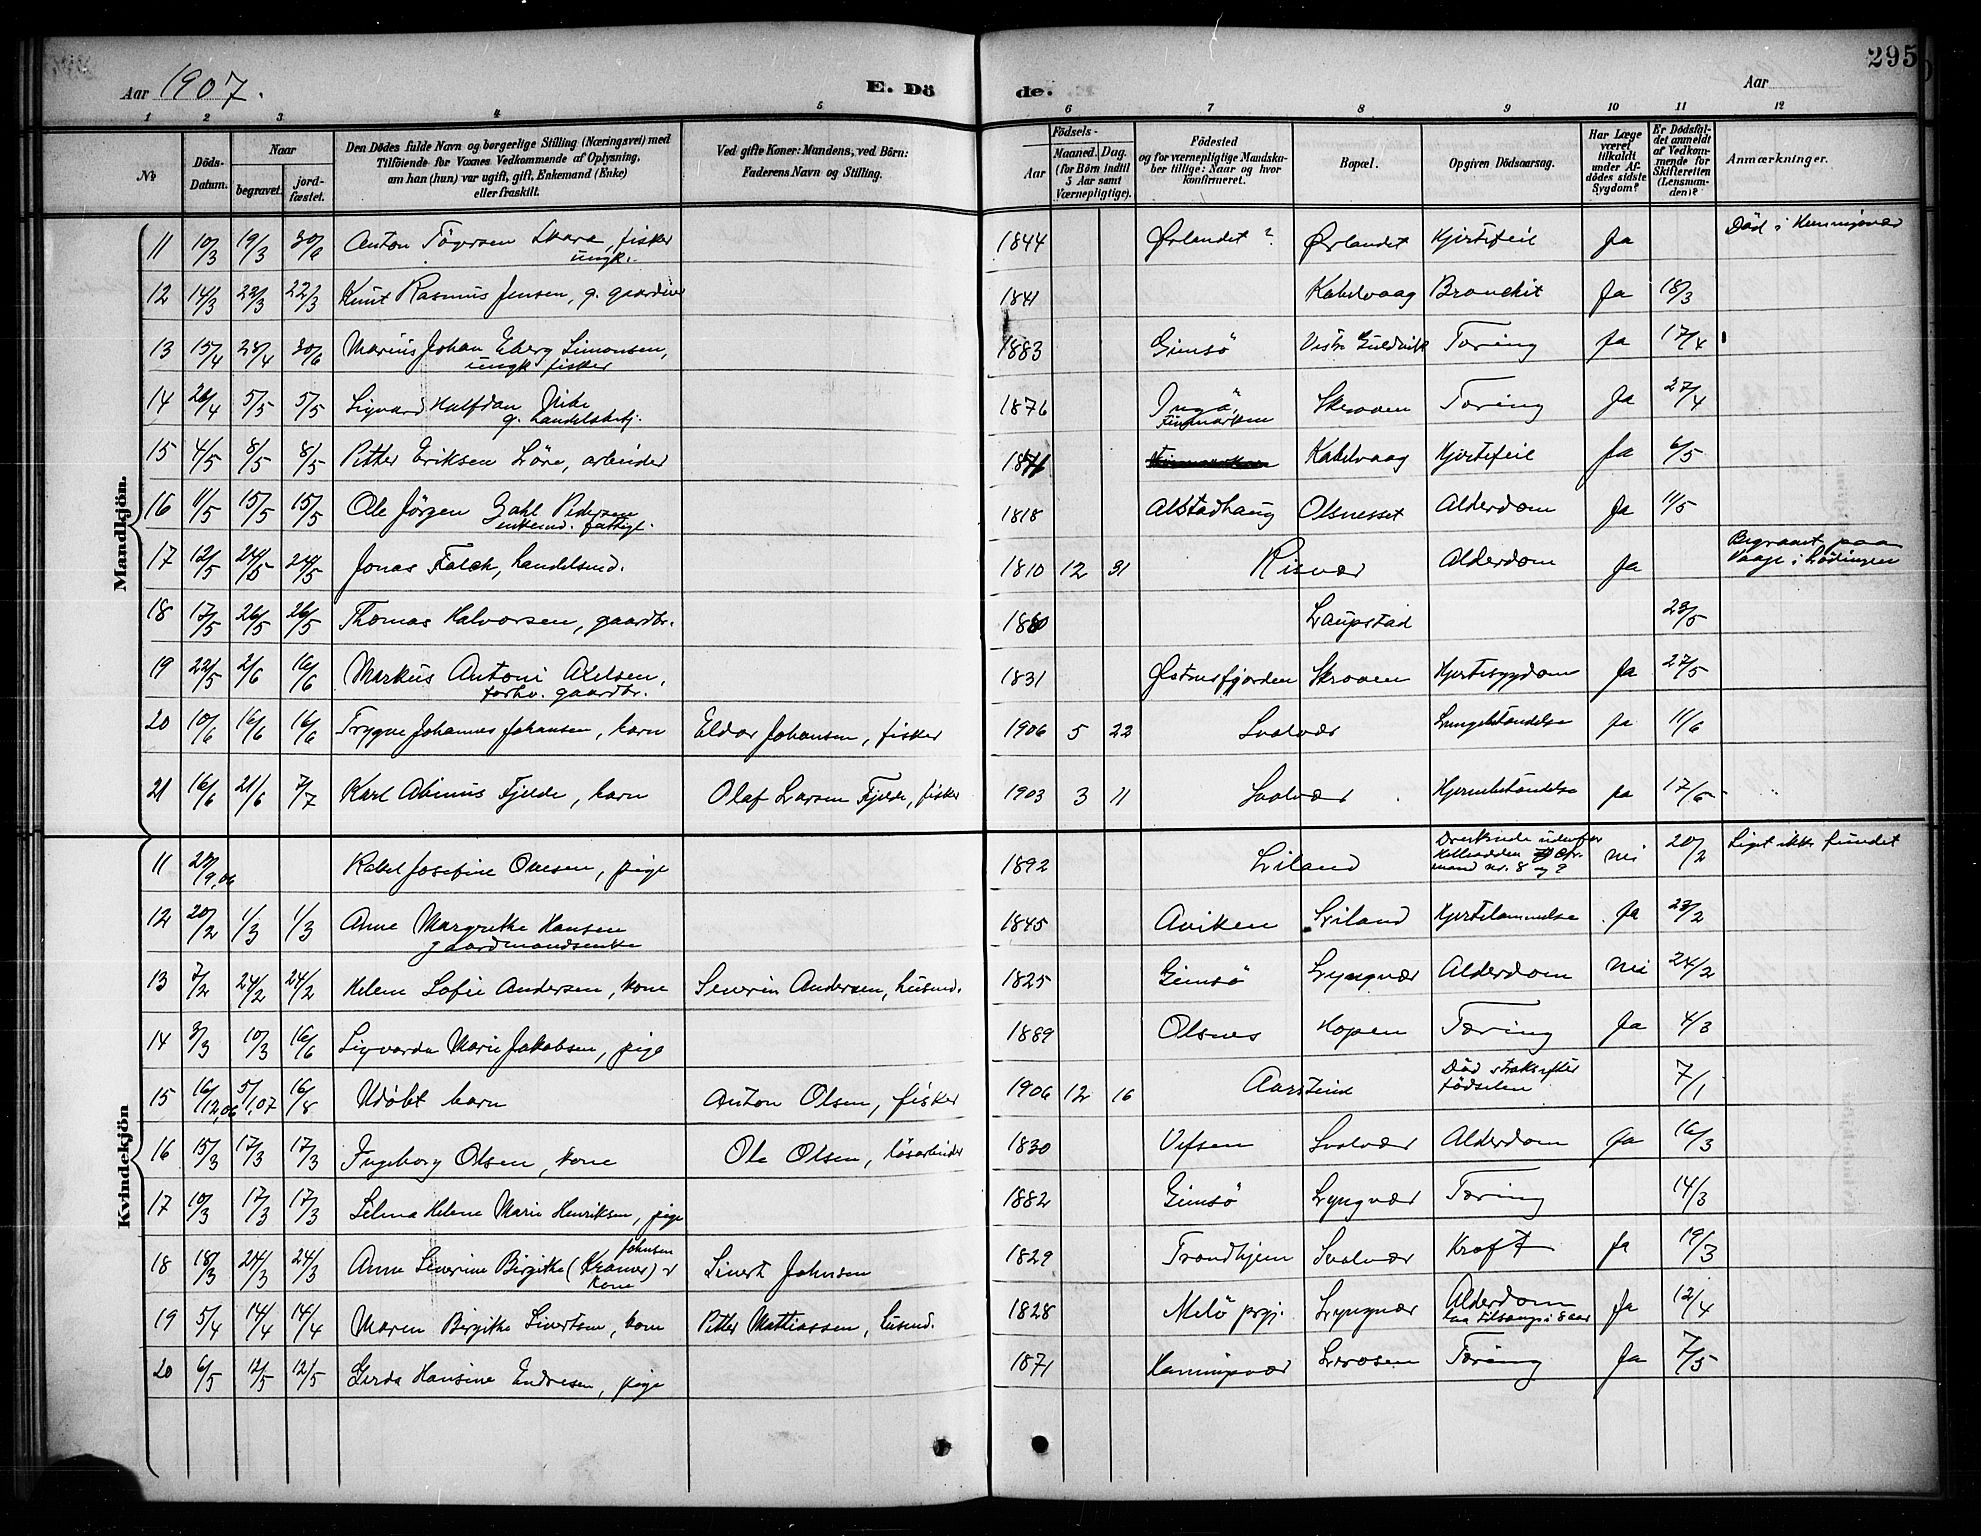 Aar 1907. E. Dö de. Aar 295
1 2 3 4 5 6 7 8 9 10 11 12
№ Döds-Datum. Naar begravet. jord-fæstet. Den Dödes fulde Navn og borgerlige Stilling (Næringsvei) med Tilföiende for Voxnes Vedkommende af Oplysning, om han (hun) var ugift, gift, Enkemand (Enke) eller fraskilt. Ved gifte Koner: Mandens, ved Börn: Faderens Navn og Stilling. Födsels- Aar Maaned. Dag. (for Börn indtil 5 Aar samt Værnepligtige). Födested og for værnepligtige Mandska-ber tillige: Naar og hvor konfirmeret. Bopæl. Opgiven Dödsaarsag. Har Læge været tilkaldt under Af-dödes sidste Sygdom? Er Dödsfal-det anmeldt af Vedkom-mende for Skifteretten (Lensman-den)? Anmærkninger.
Mandkjön.
11 10/3 19/3 30/6 Anton Skara, fisker ungk. 1844 Ørlandet ? Ørlandet Hjertefeil Ja Död i Henningsvær
12 14/3 22/3 22/3 Knut Rasmus Jensen, g. gaardbr 1841 Kabelvaag Bronchit Ja 18/3
13 15/4 28/4 30/6 Marius Johan Eberg Simonsen, ungk fisker 1883 Gimsö Vestre Guldvik Tæring ja 17/4
14 26/4 5/5 5/5 Sigvard Halfdan g. handelsbetj. 1876 Ingö, Finmarken Skroven Tæring Ja 27/4
15 4/5 8/5 8/5 Petter Eriksen Löre, arbeider Kabelvaag Hjertefeil Ja 6/5
16 11/5 15/5 15/5 Ole Jörgen Dahl Pedersen enkemd. fattigl. 1818 Alstadhaug Olsnesset Alderdom Ja 11/5
17 12/5 24/5 24/5 Jonas Falck, handelsmd. 1810 12 31 Risvær Alderdom Ja Begravet paa Vaage i Lödingen
18 17/5 26/5 26/5 Thomas Halvorsen, gaardbr. Laupstad 23/5
19 22/5 2/6 16/6 Markus Antoni Adelsen, forhv. gaardbr. 1831 Østnesfjorden Skroven Hjertesygdom Ja 27/5
20 10/6 16/6 16/6 Trygve Johannes Johansen, barn Eldor Johansen, fisker 1906 5 22 Svolvær Lungebetændelse Ja 11/6
21 16/6 21/6 7/7 Karl Abinus Fjelde, barn Olaf Larsen Fjelde, fisker 1903 3 11 Svolvær Hjernebetændelse ja 17/6
Kvindekjön
11 28/9.06 Rakel Josefine Ovesen, pige 1892 Liland Druknede udenfor nei 20/2 Liget ikke fundet
12 20/2 1/3 1/3 Anne Margrethe Hansen gaardmandsenke 1845 Aviken Liland Hjertelammelse Ja 23/2
13 7/2 24/2 24/2 Helene Sofie Andersen, kone Severin Andersen, husmd. 1825 Gimsö Lyngvær Alderdom Nei 24/2
14 3/3 10/3 16/6 Sigvarda Marie Jakobsen, pige 1889 Olsnes Hopen Tæring Ja 4/3
15 16/12,06 5/1,07 16/8 Udöbt barn Anton Olsen, fisker 1906 12 16 Aarsteind Död straks efter födselen 7/1
16 15/3 17/3 17/3 Ingeborg Olsen, kone Ole Olsen, lösarbeider 1830 Vefsen Svolvær Alderdom Ja 16/3
17 10/3 17/3 17/3 Selma Helene Marie Henriksen, pige 1882 Gimsö Lyngvær Tæring 14/3
18 18/3 24/3 24/3 Anne Severine Birgitte (Kramer) Johnsen kone Sivert Johnsen 1829 Trondhjem Svolvær Kræft Ja 19/3
19 5/4 14/4 14/4 Maren Birgitte Sivertsen, kone Petter Mattiassen, husmd. 1828 Melö prgj. Lyngvær Alderdom laa tilsengs i 8 aar Ja 12/4
20 6/5 12/5 12/5 Gerda Hansine Endresen, pige 1871 Henningsvær Lerosen Tæring Ja 7/5